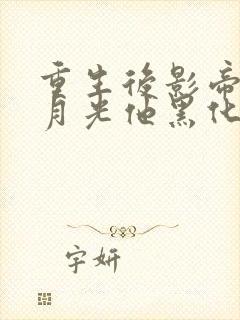 重生後影帝
月光他黑化
宇妍